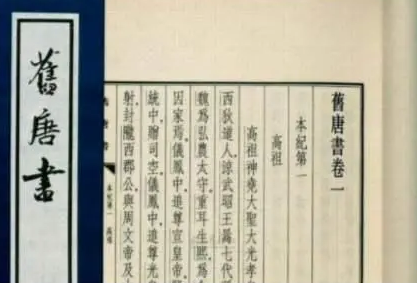 舊唐書
舊唐書卷一
本紀第一
高祖
高祖神堯大聖大光孝皇
西狄道人涼武昭王暠七代孫
魏為弘農太守重耳生熙為金
因家焉儀鳳中追尊宣皇帝
統中贈司空儀鳳中追尊光皇
射封隴西郡公與周文帝及太
本紀第一 高祖